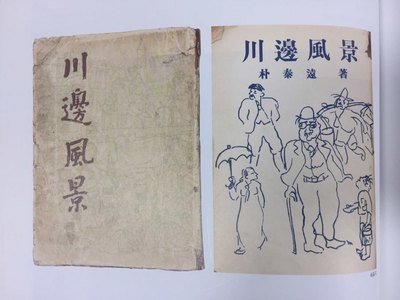 川邊風景
川邊風景
朴泰遠 著